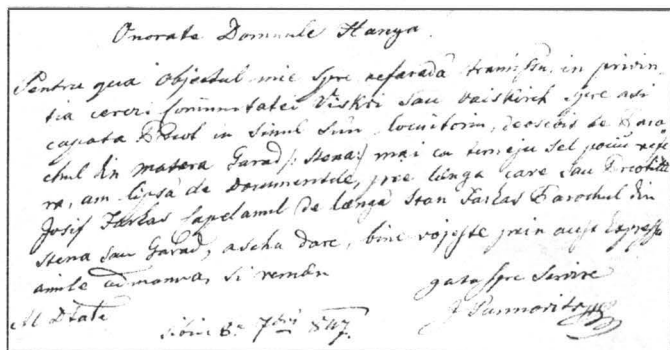 Onorate Domnule Hanya.
Pentru quia Objectul mie spre referadă transpus, in privin
tia cererei Comunitatei Viskri sau Vaiskirch spre a si
capata Preot in sinul său locuitoriu, deosebit de Paro
chul din matera Garad /: Stena :/ mai cu temeju sel pociu refe
ra, am lipsă de Documentele, pre lănga care sau
Josif Farkas Capelanul de lănga Stan Farkas Parochul din
Stena sau Garad, ascha dare, bine vojeste prin acest Expresse
amile admanua, si remăn
gata spre Servire
Al Dtale
Sibiu 8 7bri 847.